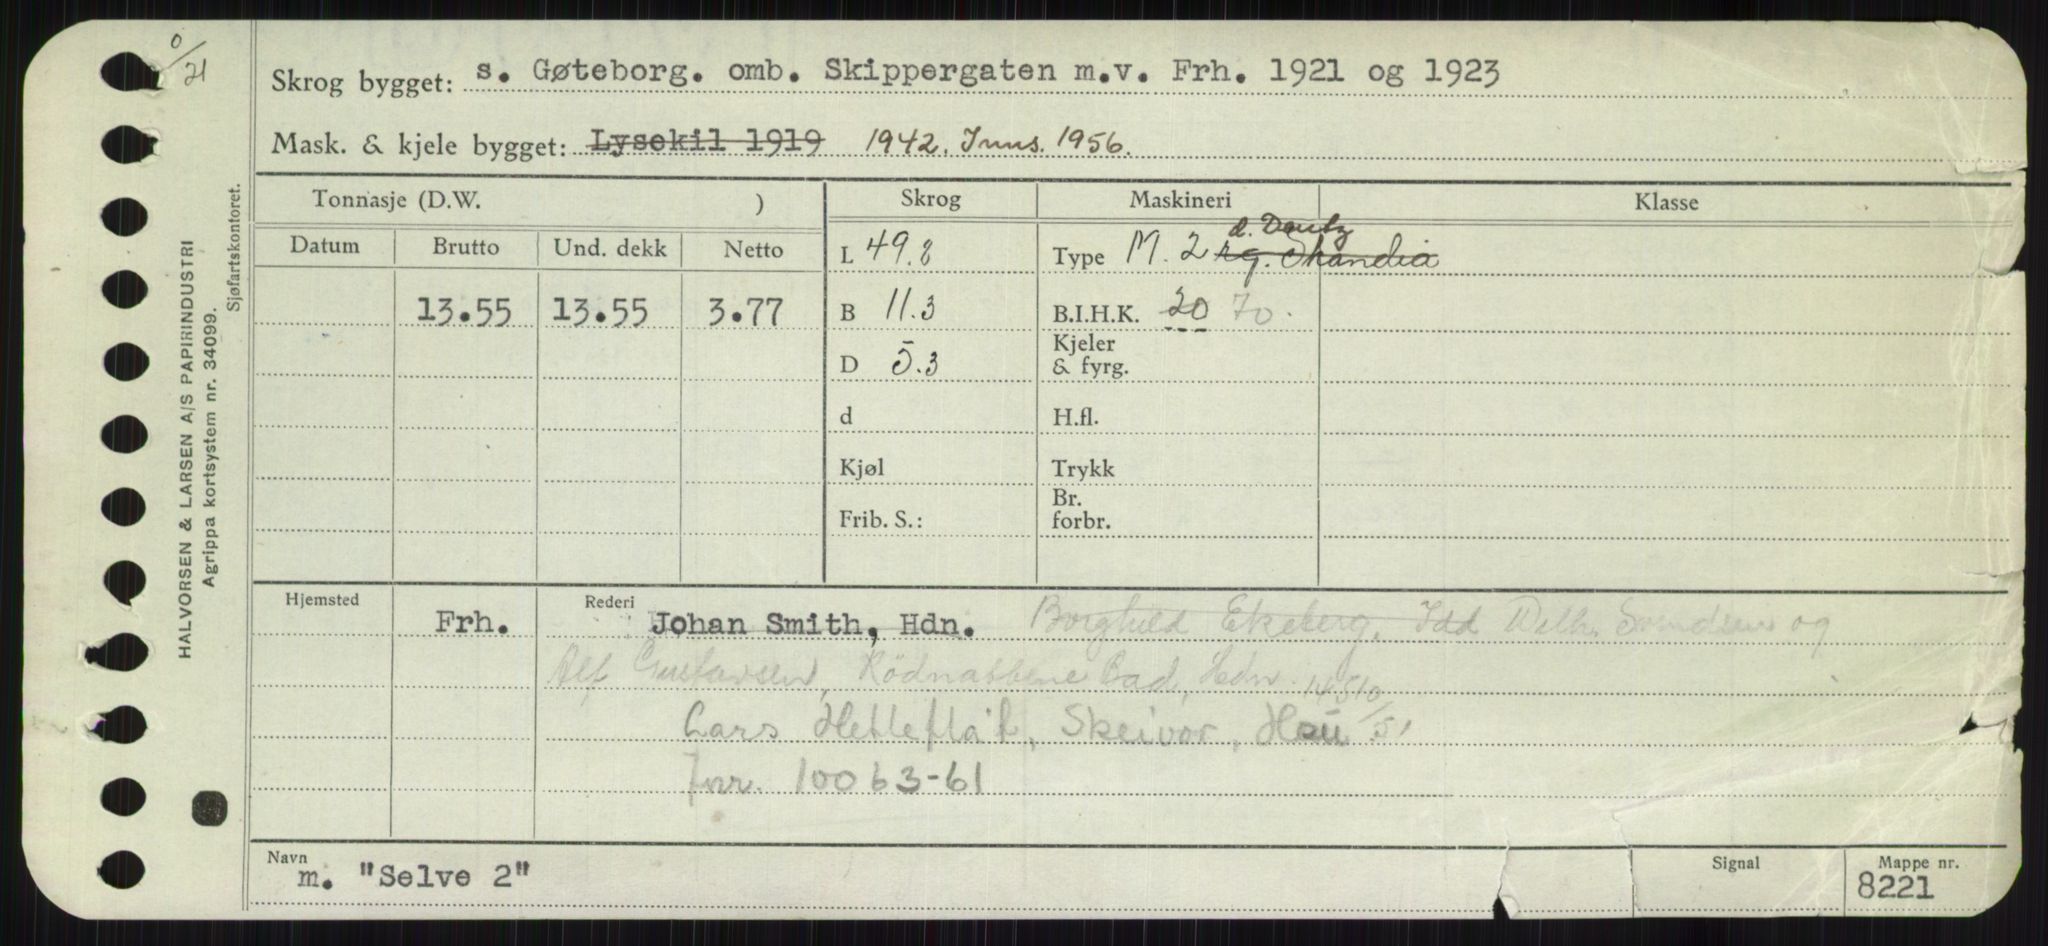 0/21
Skrog bygget: s. Gøteborg. omb. Skippergaten m.v. Frh. 1921 og 1923
Mask. & kjele bygget: Lysekil 1919 1942. Inns. 1956.
Tonnasje (D.W. ) Skrog Maskineri Klasse
Datum Brutto Und. dekk Netto
L 49.8 Type M. 2 rg. Skandia d. Deutz
13.55 13.55 3.77 B 11.3 B.I.H.K. 20 70.
D 5.3 Kjeler & fyrg.
d H.fl.
Kjøl Trykk
Frib. S.: Br. forbr.
Hjemsted Rederi
Frh. Johan Smith, Hdn. Borghild Ekeberg, Idd Wilh. Svendsen og
Alf Gustavsen, Rödnabbene Bad, Hdn. 14510/51
Lars Hetleflåt, Skeivor, Hau
Jnr. 10063-61
Navn Signal Mappe nr.
m. "Selve 2" 8221
HALVORSEN & LARSEN A/S PAPIRINDUSTRI
Agrippa kortsystem nr. 34099.
Sjøfartskontoret.